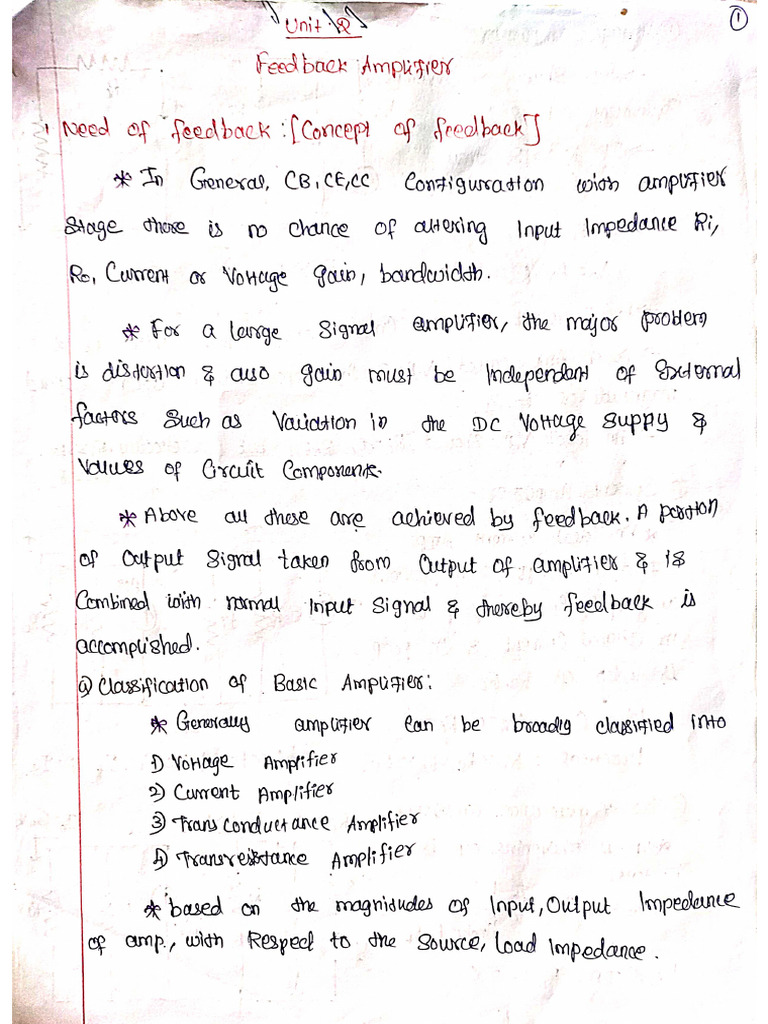 ①
Unit 2
Feedback Amplifier
Need of feedback: [Concept of feedback]
* In General, CB, CE, CC Configuration with amplifier
Stage there is no chance of altering Input Impedance Ri,
Ro, Current or Voltage gain, bandwidth.
* For a large Signal amplifier, the major problem
is distortion & also gain must be Independent of External
factors Such as Variation in the DC Voltage Supply &
Values of Circuit Components.
* Above all these are achieved by feedback. A portion
of Output Signal taken from Output of amplifier & is
Combined with normal Input Signal & thereby feedback is
accomplished.
Classification of Basic Amplifier:
* Generally amplifier can be broadly classified into
1) Voltage Amplifier
2) Current Amplifier
3) Trans conductance Amplifier
4) Transresistance Amplifier
* based on the magnitudes of Input, Output Impedance
of amp., with Respect to the Source, Load Impedance.